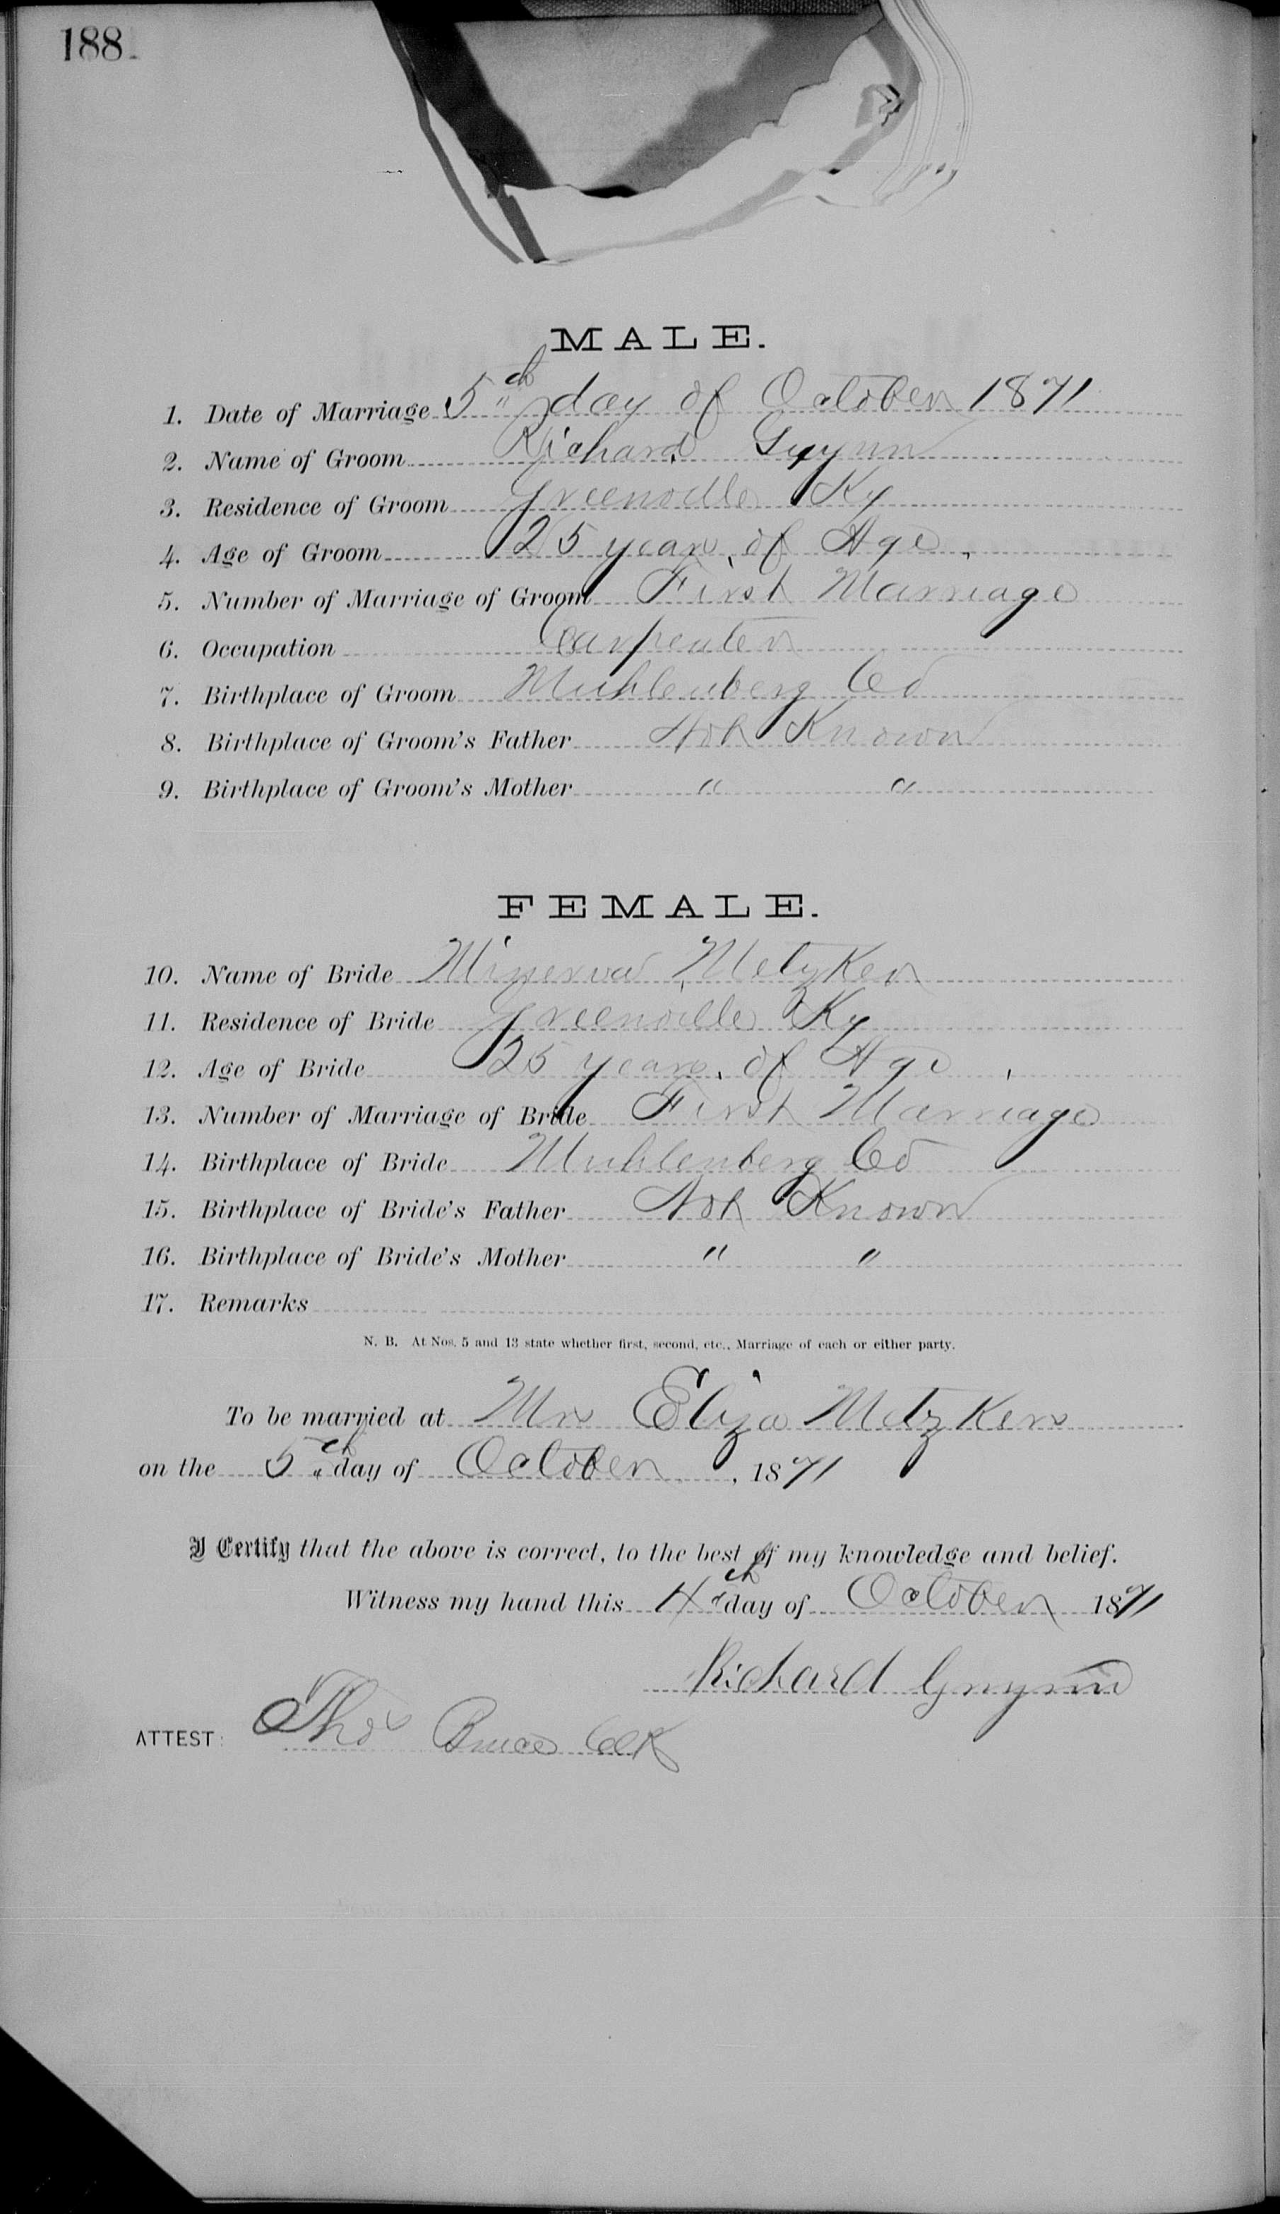 188
MALE.
1. Date of Marriage 5th day of October 1871
2. Name of Groom Richard Gwynn
3. Residence of Groom Greenville Ky
4. Age of Groom 25 years of Age
5. Number of Marriage of Groom First Marriage
6. Occupation Carpenter
7. Birthplace of Groom Muhlenberg Co
8. Birthplace of Groom's Father Not Known
9. Birthplace of Groom's Mother " "
FEMALE.
10. Name of Bride Minerva Metzker
11. Residence of Bride Greenville Ky
12. Age of Bride 25 years of Age
13. Number of Marriage of Bride First Marriage
14. Birthplace of Bride Muhlenberg Co
15. Birthplace of Bride's Father Not Known
16. Birthplace of Bride's Mother " "
17. Remarks
N. B. At Nos. 5 and 13 state whether first, second, etc., Marriage of each or either party.
To be married at Mrs Eliza Metzkers
on the 5th day of October, 1871
I Certify that the above is correct, to the best of my knowledge and belief.
Witness my hand this 4th day of October 1871
Richard Gwynn
ATTEST: Thos Bruce Clk